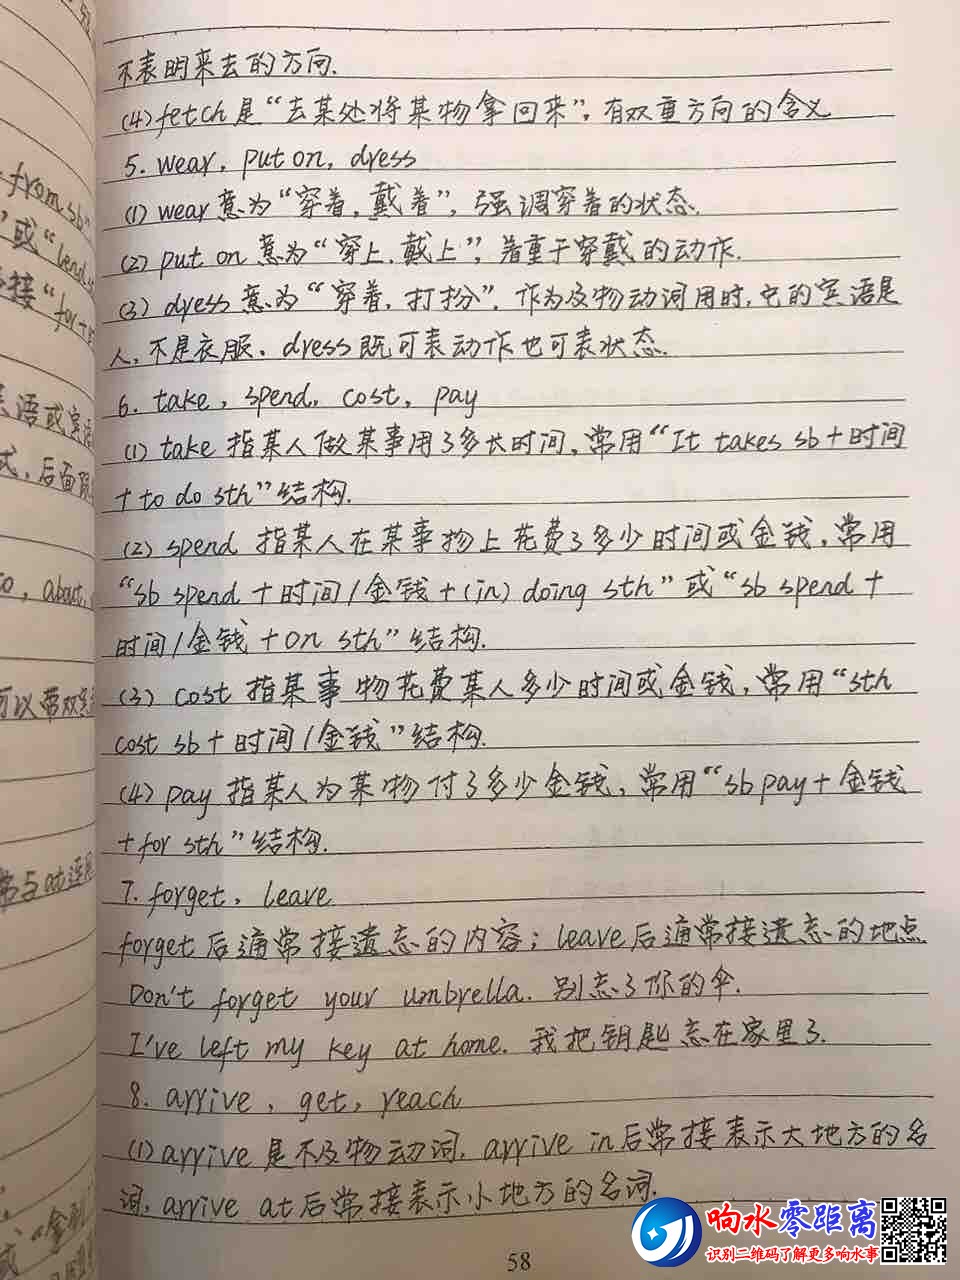 from sb”
”或“lend
接“for+
语或宾语
式,后面
to, about,
可以带双宾
常与at连用
或“金
不表明来去的方向.
(4) fetch 是“去某处将某物拿回来”,有双重方向的含义
5. wear, put on, dress
(1) wear 意为“穿着,戴着”,强调穿着的状态.
(2) put on 意为“穿上,戴上”,着重于穿戴的动作.
(3) dress 意为“穿着,打扮”.作为及物动词用时,它的宾语是
人,不是衣服. dress 既可表动作也可表状态.
6. take, spend, cost, pay
(1) take 指某人做某事用了多长时间,常用“It takes sb+时间
+to do sth”结构.
(2) spend 指某人在某事物上花费了多少时间或金钱,常用
“sb spend+时间/金钱+(in) doing sth”或“sb spend+
时间/金钱+on sth”结构.
(3) cost 指某事物花费某人多少时间或金钱,常用“sth
cost sb+时间/金钱”结构.
(4) pay 指某人为某物付了多少金钱,常用“sb pay+金钱
+for sth”结构.
7. forget, leave
forget 后通常接遗忘的内容;leave 后通常接遗忘的地点
Don't forget your umbrella. 别忘了你的伞.
I've left my key at home. 我把钥匙忘在家里了.
8. arrive, get, reach
(1) arrive 是不及物动词. arrive in 后常接表示大地方的名
词, arrive at 后常接表示小地方的名词.
58
响水零距离
识别二维码了解更多响水事